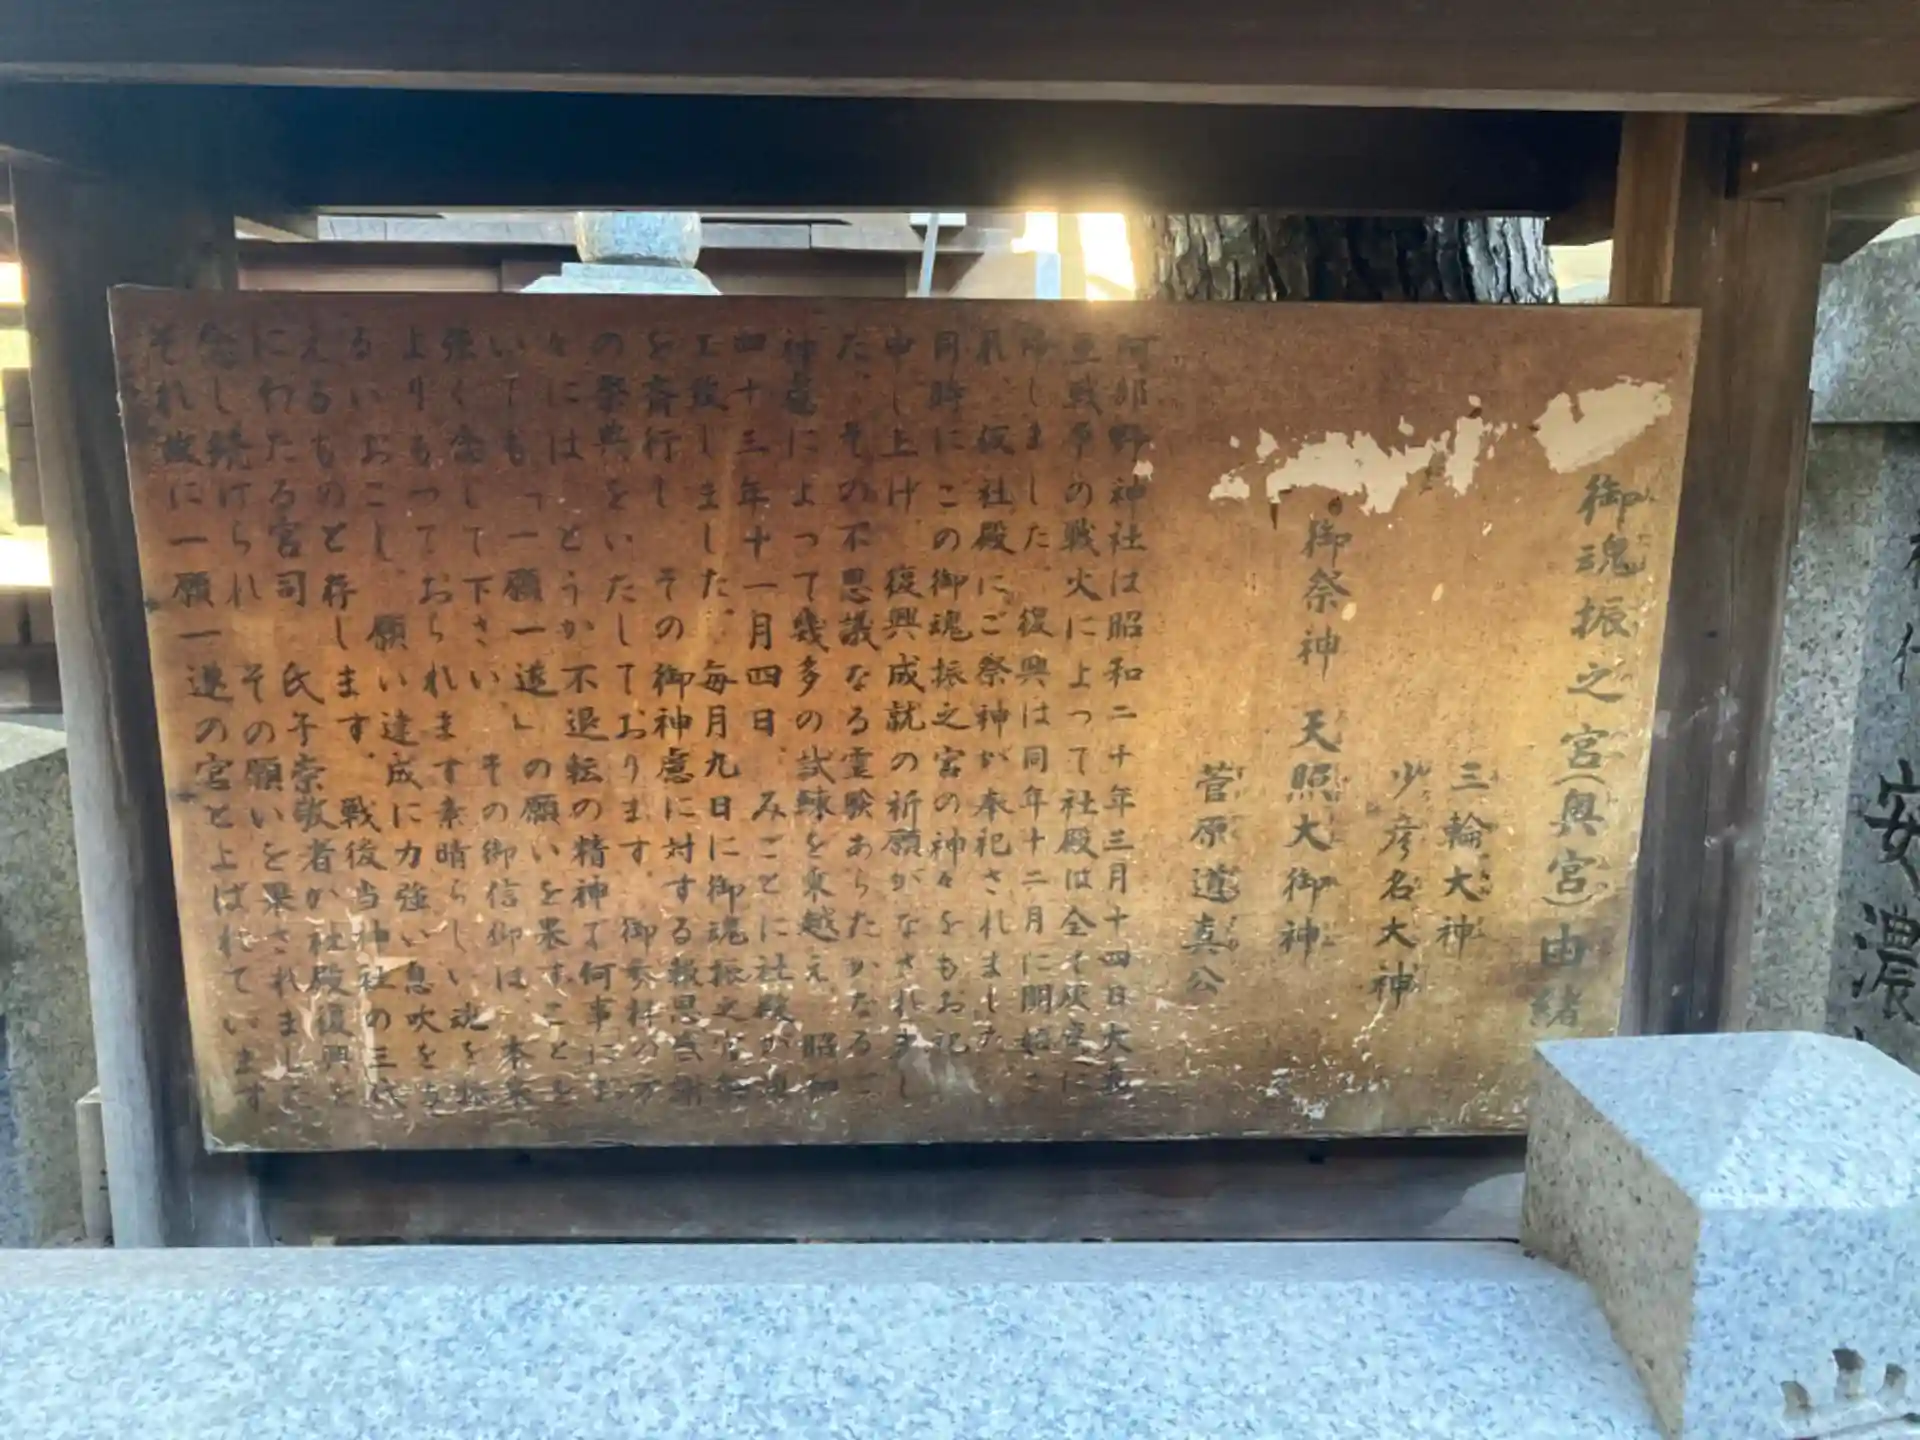 御魂振之宮(奥宮)由緒
三輪大神
少彦名大神
御祭神 天照大御神
菅原道真公
阿部野神社は昭和二十年三月十四日大東
亜戦争の戦火によって社殿は全て灰塵に
帰しました。復興は同年十二月に開始さ
れ、仮社殿にご祭神が奉祀されました
同時にこの御魂振之宮の神々をもお祀
申し上げ、復興成就の祈願がなされまし
た。その不思議なる霊験あらたかなるご
神慮によって幾多の試練を乗越え、昭和
四十三年十一月四日 みごとに社殿が
工致しました。毎月九日に御魂振之宮祭
を斎行し その御神慮に対する報恩感謝
の祭典をいたしております。御参拝の方
々には とうか不退転の精神で何事にお
いても「一願一遂」の願いを果すことを
強く念して下さい その御信仰は 本来
よりもっておられます素晴らしい魂を振
るいおこし、願い達成に力強い息吹を与
えるものと存します。戦後当神社の三代
にわたる宮司 氏子崇敬者か社殿復興を
念し続けられ その願いを果されました
それ故に一願一遂の宮と上ばれています
安濃
山